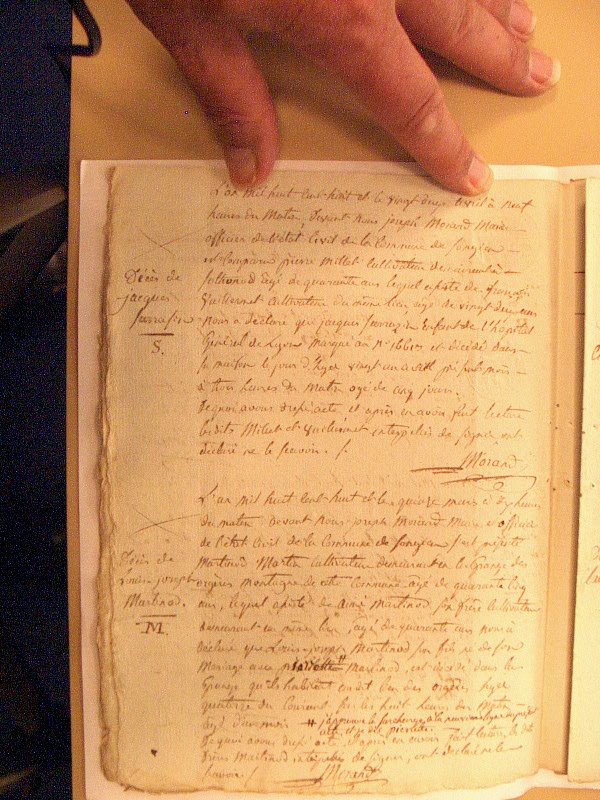 L'an mil huit cent huit et le vingt deux avril à neuf
heures du matin, devant nous joseph Morand Maire
officier de l'état civil de la Commune de
est comparu pierre Millet cultivateur demeurant à
agé de quarante ans lequel assisté de françois
Vuillermet cultivateur du même lieu, agé de vingt deux ans
nous a déclaré que jacques enfant de l'hopital
Général de Lyon marqué au n° et décédé dans
sa maison le jour d'hyer vingt un avril
à trois heures du matin agé de cinq jours.
De quoi avons dressé acte et après en avoir fait lecture
lesdits Millet et Vuillermet interpellés de signer ont
déclaré ne le scavoir. /.
Morand
Décès de
jacques
S.
L'an mil huit cent huit et le quinze mars à dix heures
du matin devant nous joseph Morand Maire et officier
de l'état Civil de la Commune de
Martinod Martin cultivateur demeurant en la Grange des
orgères montagne de cette Commune agé de quarante cinq
ans, lequel assisté de aimé Martinod son frère cultivateur
demeurant au même lieu, agé de quarante ans nous a
déclaré que Louis joseph Martinod son fils né de son
Mariage avec Martinod, est décédé dans la
Grange qu'ils habitent au dit lieu des orgères hyer
quatorze du courant sur les huit heures du matin
agé d'un mois
De quoi avons dressé acte et après en avoir fait lecture, les dits
frères Martinod interpellés de signer, ont déclaré ne le
scavoir /.
Morand
Décès de
Louis joseph
Martinod.
M.